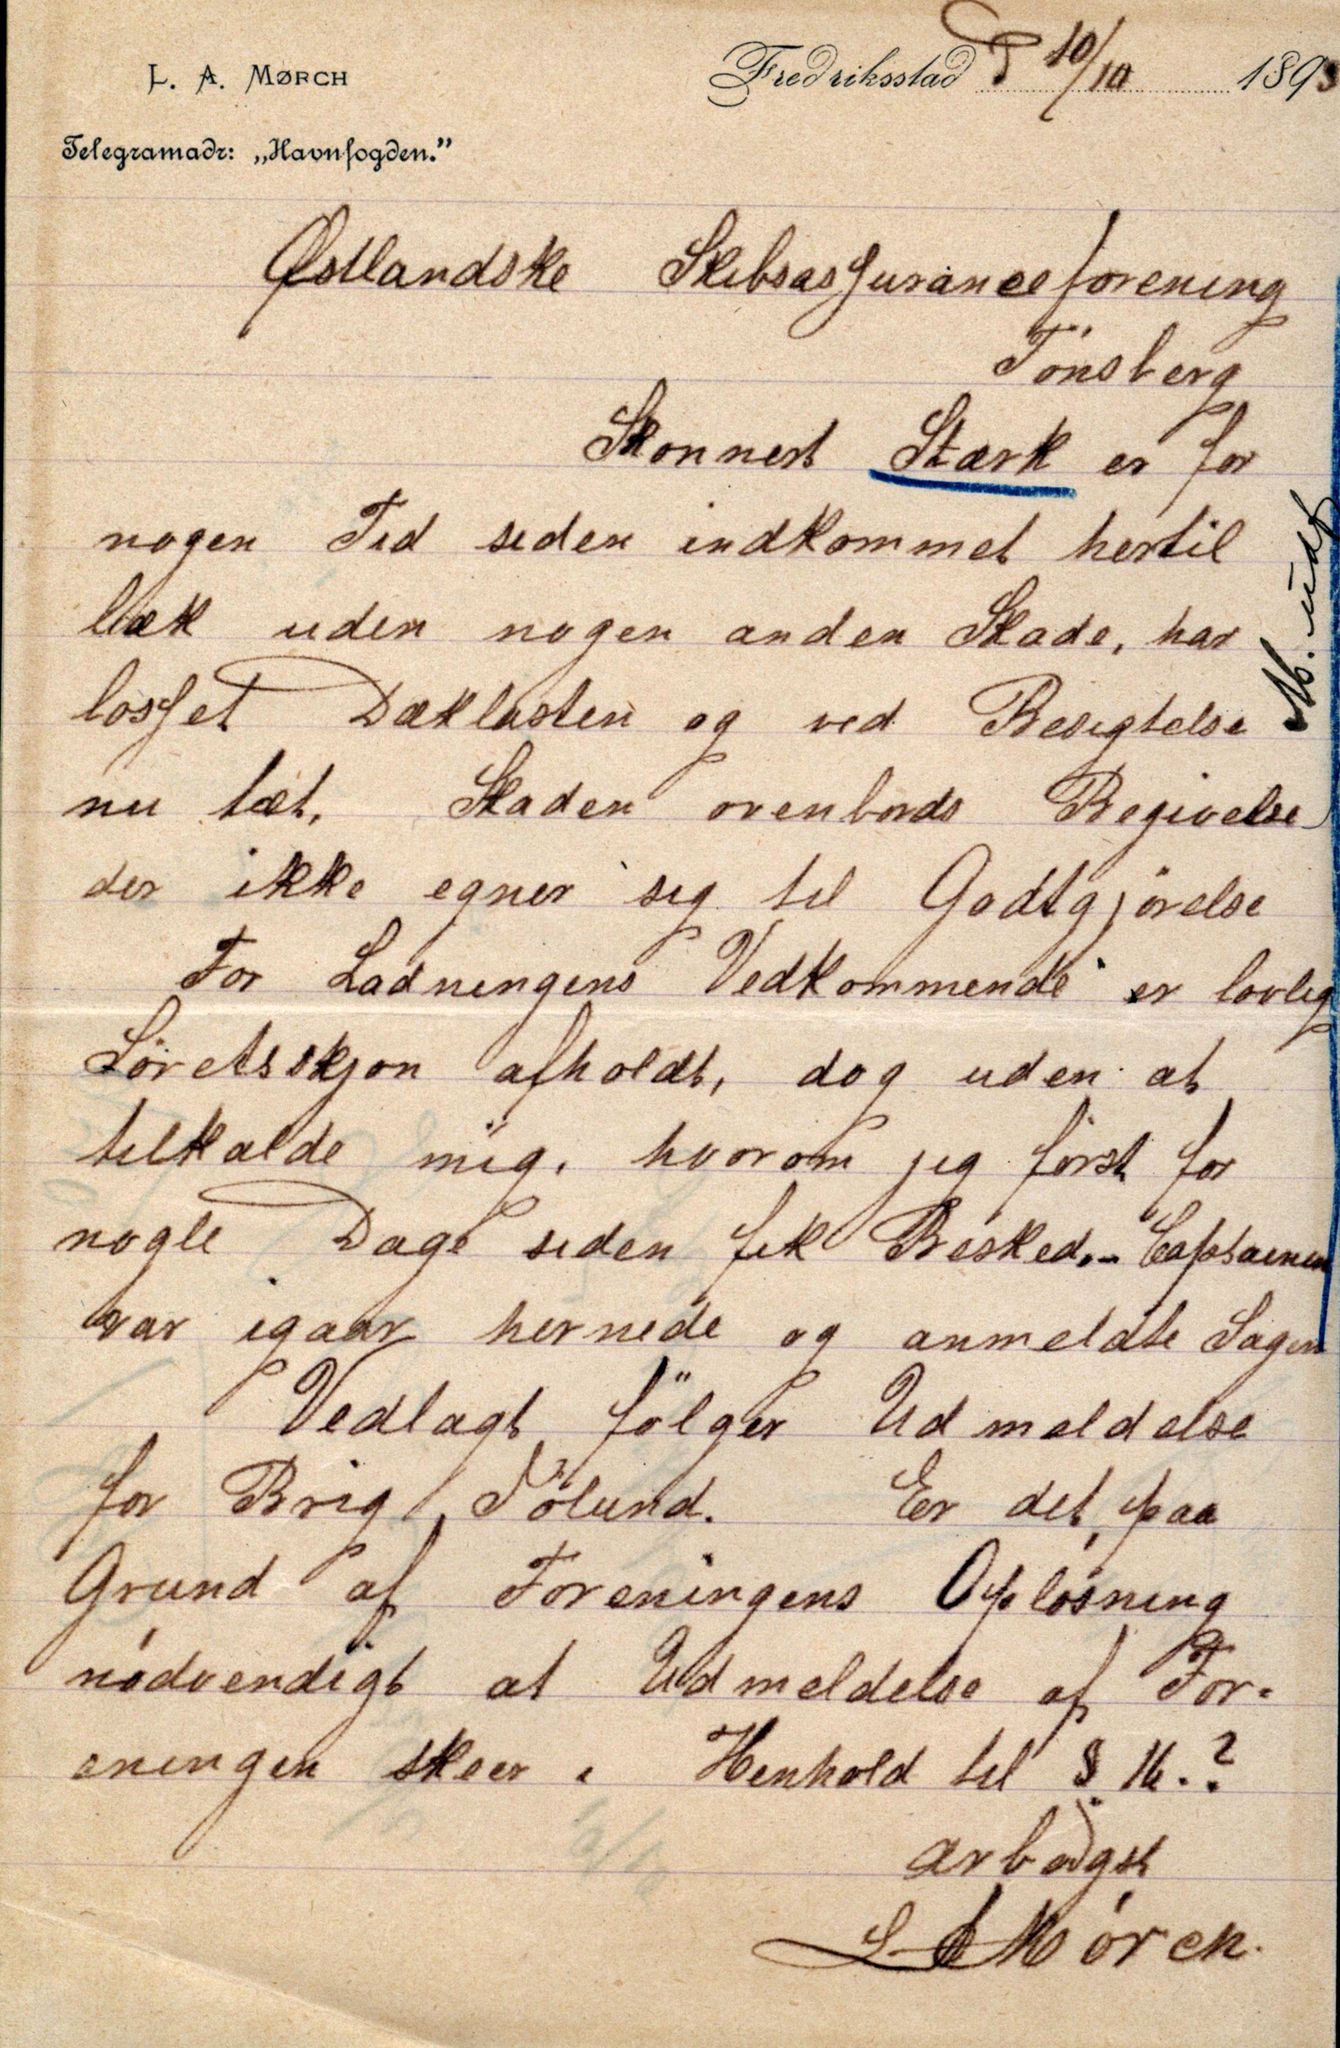 L. A. MØRCH
Fredriksstad D 10/10 1893
Telegramadr: „Havnfogden."
Østlandske Skibsassuranceforening
Tönsberg
Skonnert Stærk er for
nogen Tid siden indkommet hertil
læk uden nogen anden Skade, har
losset Dæklasten og ved Besigtelse
nu tæt. Skaden ovenbords Begivelse
der ikke egner sig til Godtgjörelse
For Ladningens Vedkommende er lovlig
Söretsskjön afholdt, dog uden at
tilkalde mig, hvorom jeg först for
nogle Dage siden fik Besked. - Captainen
var igaar hernede og anmeldte Sagen
Vedlagt fölger Udmeldelse
for Brig Sölund. Er det paa
Grund af Foreningens Oplösning
nödvendigt at Udmeldelse af For-
eningen skeer i Henhold til § 16.?
ærbödgst
L A Mörch.